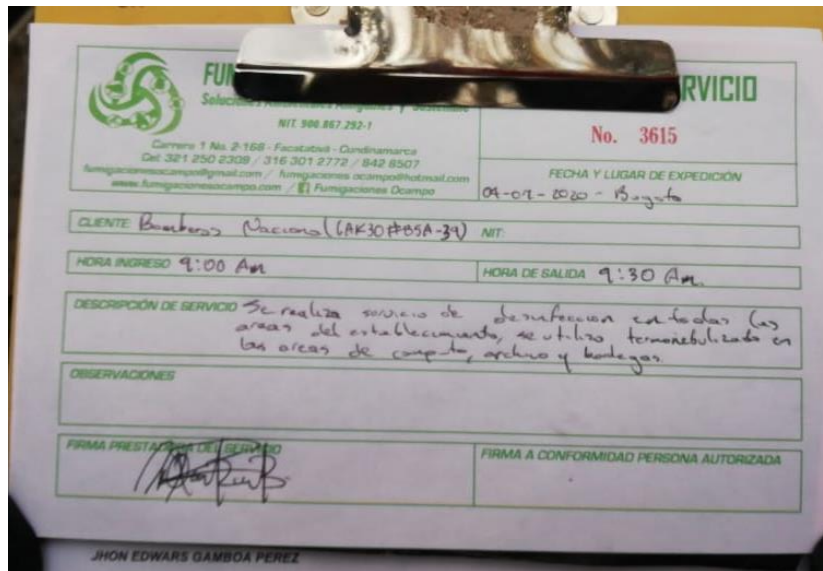 FUM
RVICIO
Soluciones Ambientales Amigables y Sostenible
NIT. 900.867.292-1
Carrera 1 No. 2-168 - Facatativá - Cundinamarca
Cel: 321 250 2309 / 316 301 2772 / 842 6507
fumigacionesocampo@gmail.com / fumigaciones ocampo@hotmail.com
www.fumigacionesocampo.com / Fumigaciones Ocampo
No. 3615
FECHA Y LUGAR DE EXPEDICIÓN
2020 - Bogota
CLIENTE: Bomberos Nacional (AK30#85A-39) NIT:
HORA INGRESO 9:00 Am HORA DE SALIDA 9:30 Am.
DESCRIPCIÓN DE SERVICIO Se realiza servicio de desinfeccion en todas las
areas del establecimiento, se utilizo termonebulizado en
las areas de computo, archivo y bodegas.
OBSERVACIONES
FIRMA PRESTADOR DEL SERVICIO FIRMA A CONFORMIDAD PERSONA AUTORIZADA
JHON EDWARS GAMBOA PEREZ